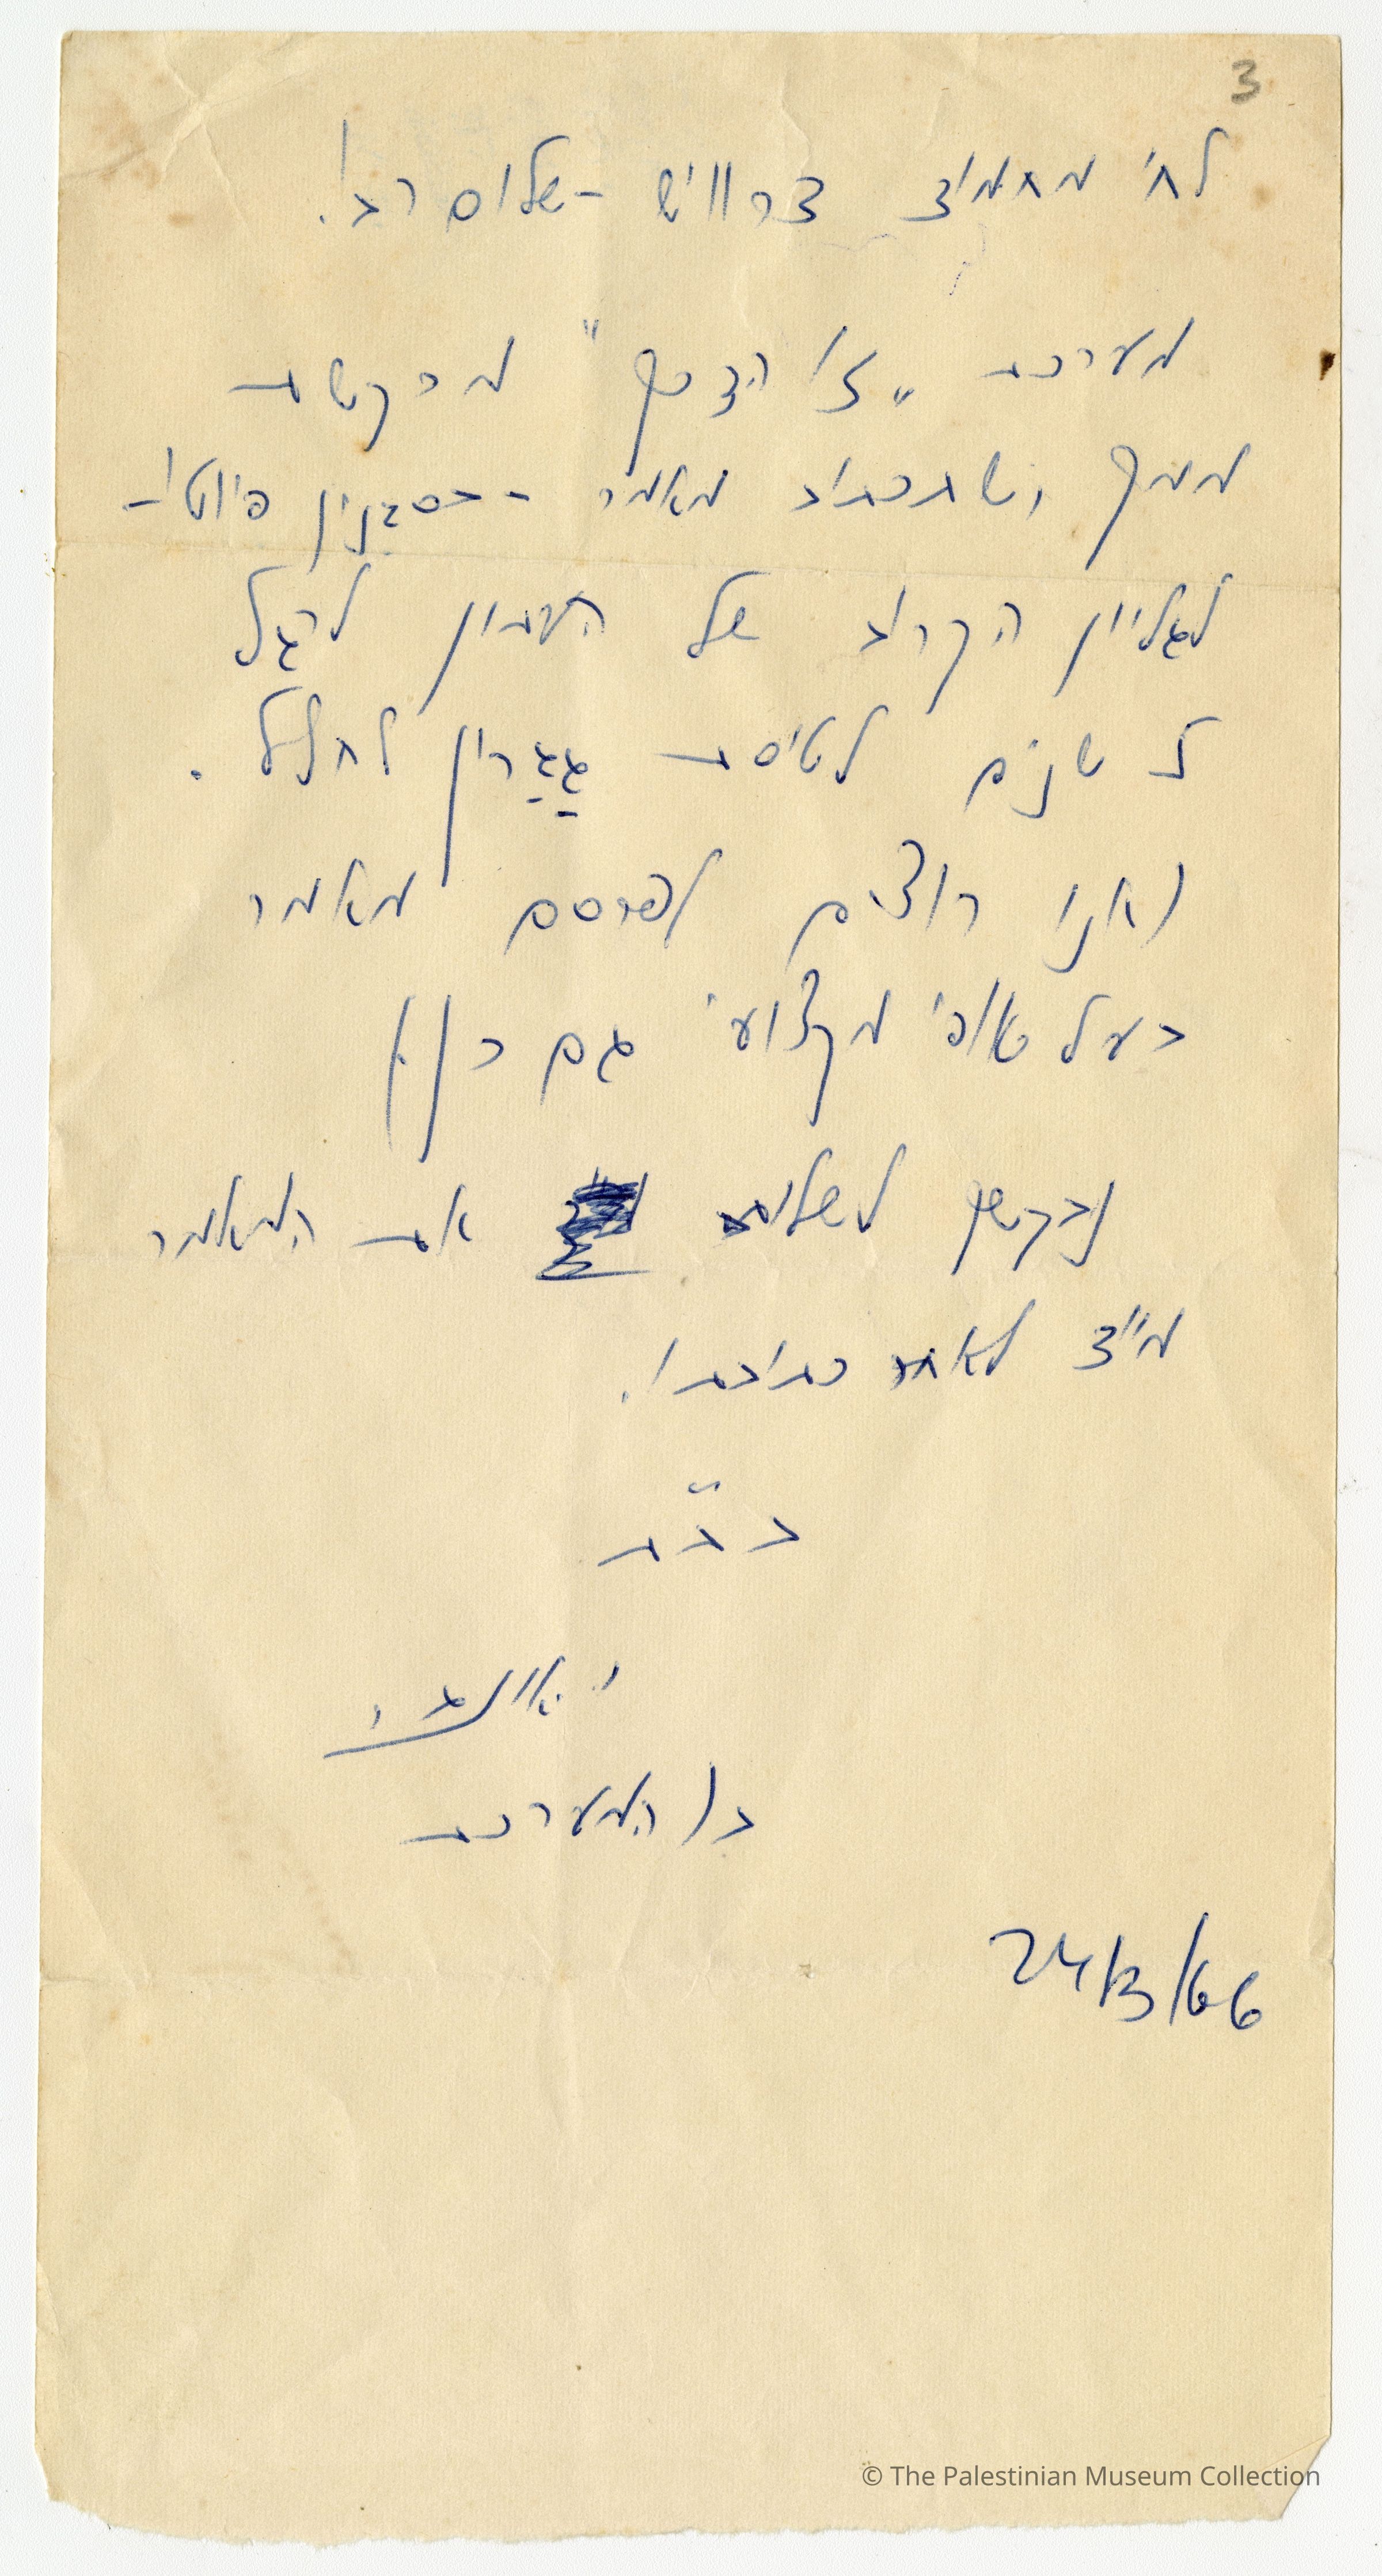 3
לח' מחמוד דרוויש - שלום רב!
מערכת "זו הדרך" מבקשת
ממך שתכתוב מאמר - בסגנון פיוטי -
לגליון הקרוב של העתון לרגל
5 שנים לטיסת גגרין לחלל.
אנו רוצים לפרסם מאמר
בעל אופי מקצועי גם כן.
נבקשך לשלוח את המאמר
מייד לאחר כתיבתו.
בב"ח
המערכת
24/3/66
© The Palestinian Museum Collection